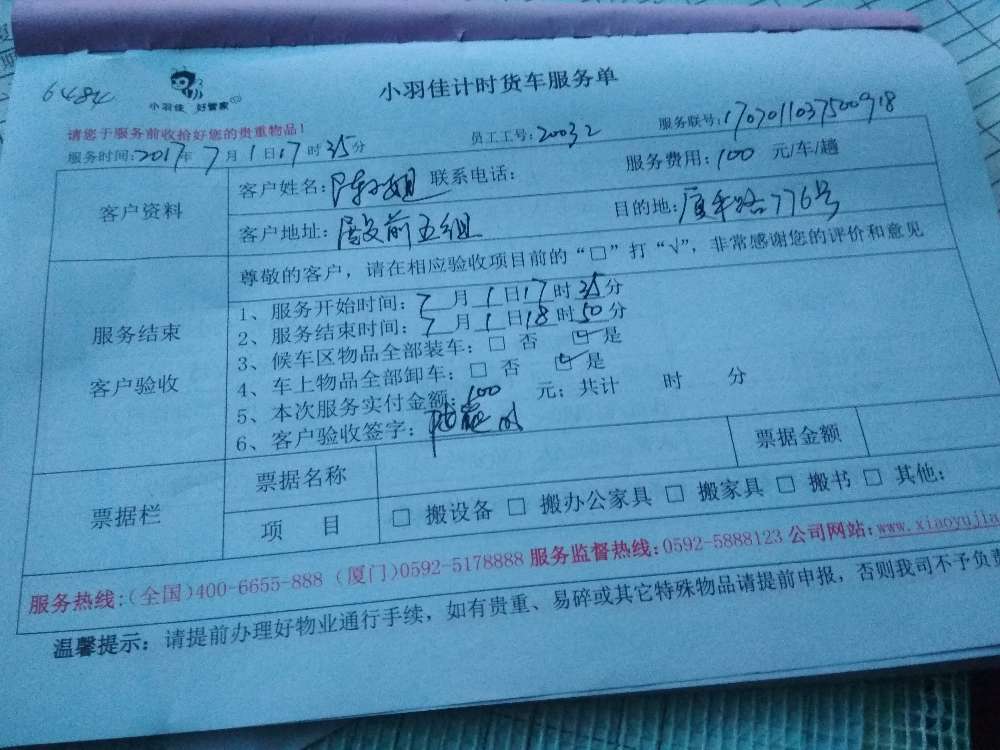 6484
小羽佳 好管家
小羽佳计时货车服务单
请您于服务前收拾好您的贵重物品!
服务时间:2017年7月1日17时35分 员工工号:20032 服务联号:170701103750091 8
客户资料
客户姓名:陈小姐 联系电话: 服务费用:100 元/车/趟
客户地址:殿前五组 目的地:厦禾路776号
服务结束
客户验收
尊敬的客户,请在相应验收项目前的“□”打“√”,非常感谢您的评价和意见
1、服务开始时间:7月1日17时35分
2、服务结束时间:7月1日18时50分
3、候车区物品全部装车:□ 否 ☑ 是
4、车上物品全部卸车:□ 否 ☑ 是
5、本次服务实付金额:100 元;共计 时 分
6、客户验收签字:
票据栏
票据名称 票据金额
项 目 □ 搬设备 □ 搬办公家具 □ 搬家具 □ 搬书 □ 其他:
服务热线:(全国)400-6655-888 (厦门)0592-5178888 服务监督热线:0592-5888123 公司网站:www.xiaoyujia
温馨提示:请提前办理好物业通行手续,如有贵重、易碎或其它特殊物品请提前申报,否则我司不予负责